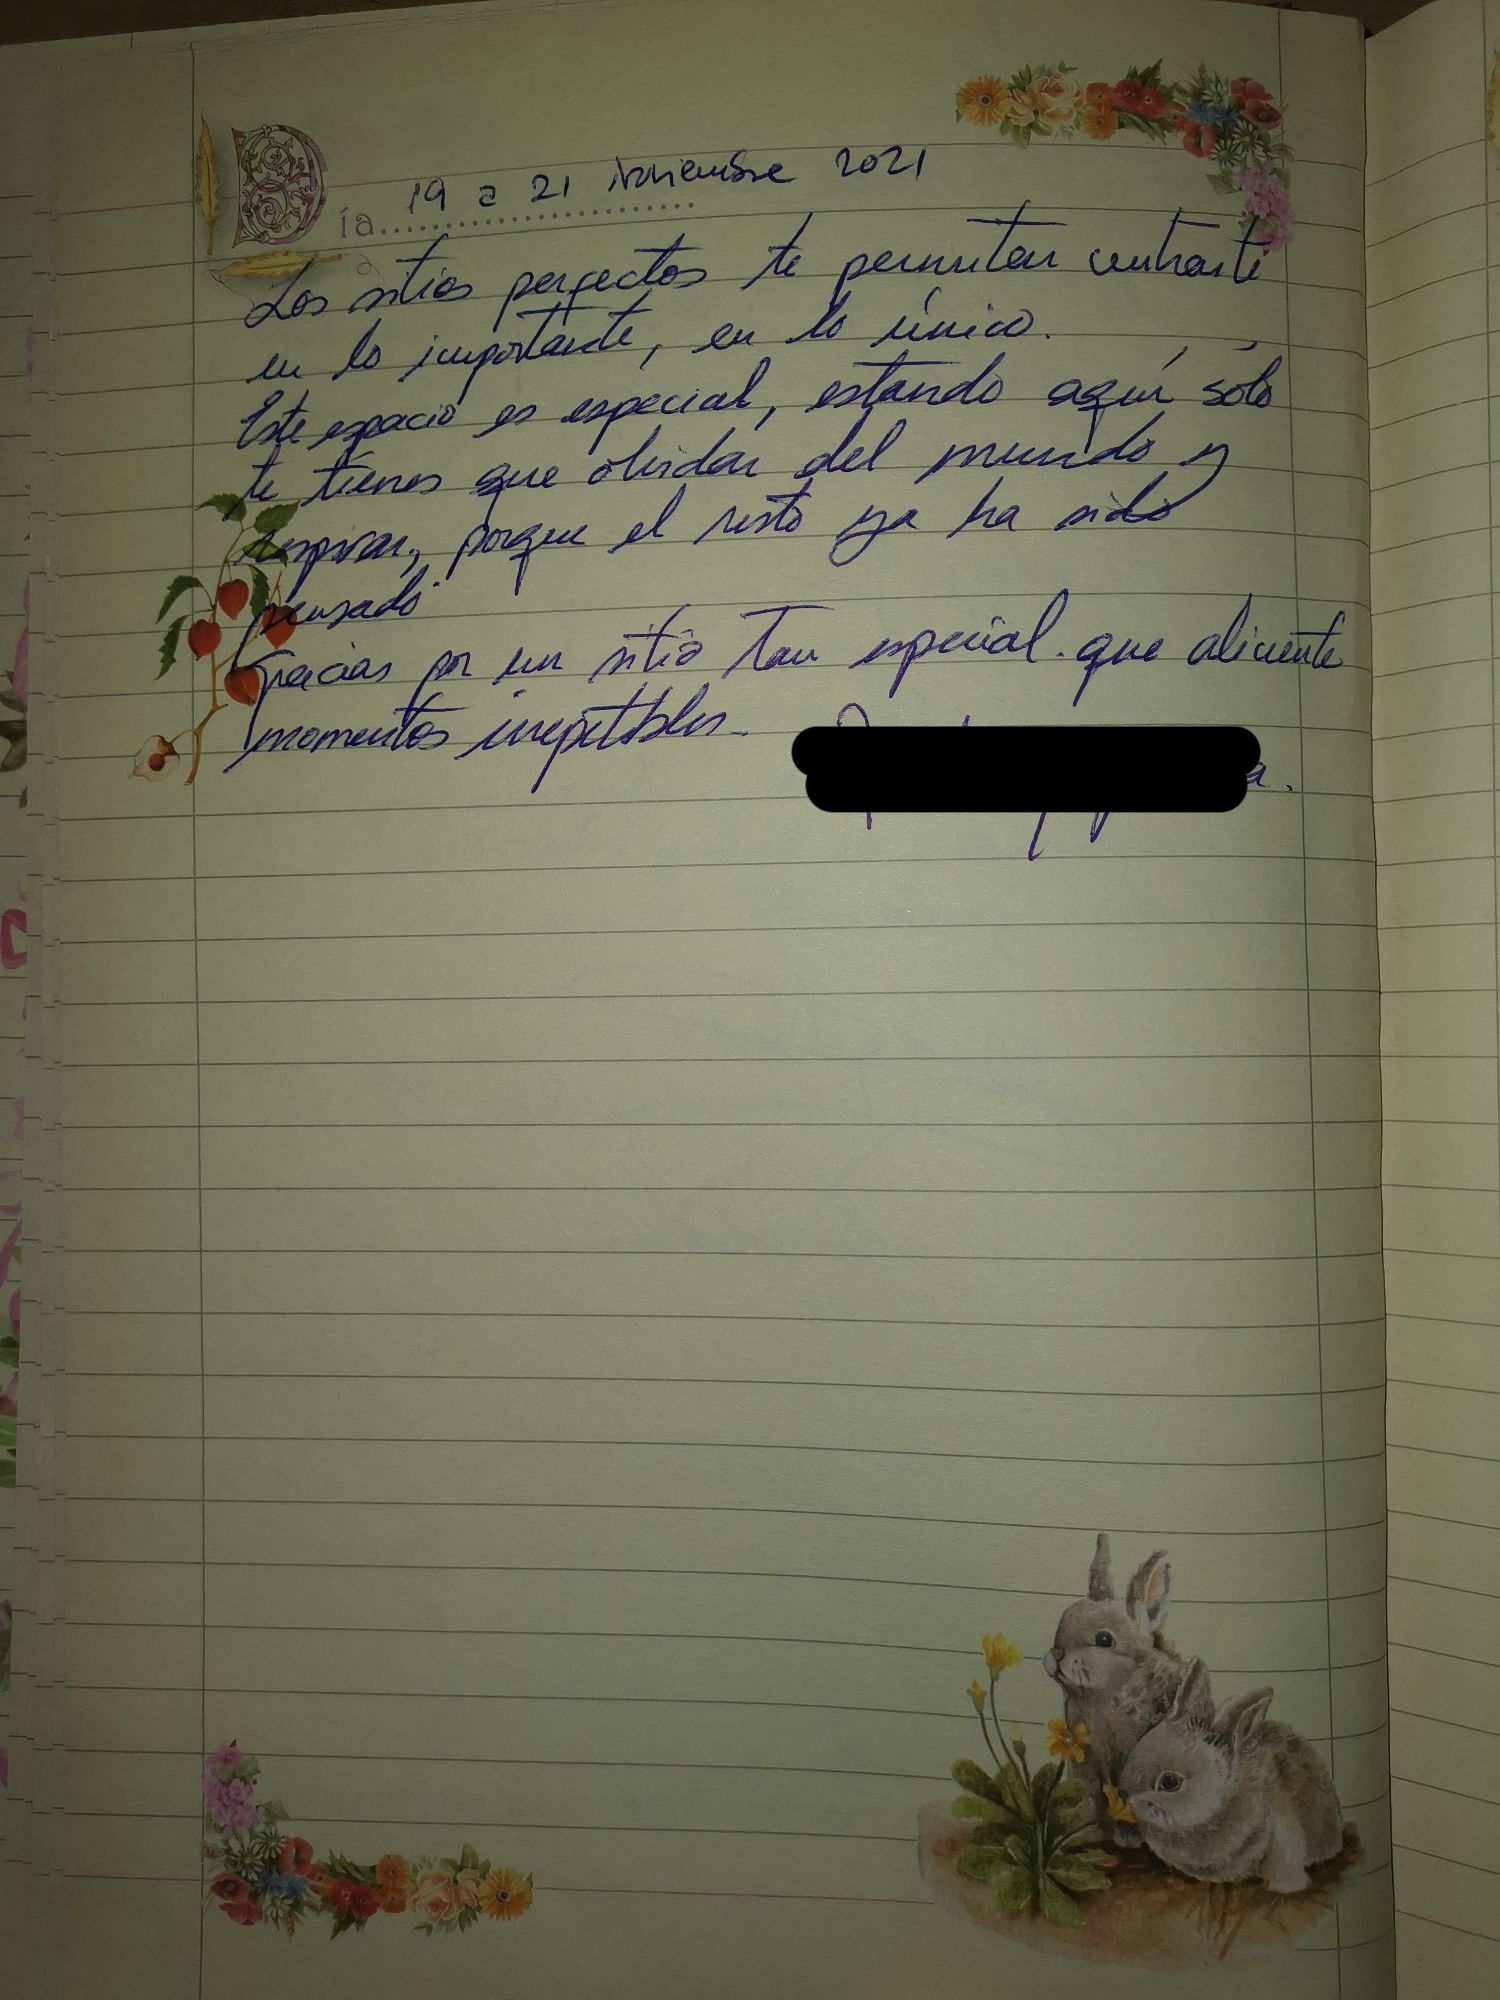 Día 19 a 21 Noviembre 2021
Los sitios perfectos te permiten centrarte
en lo importante, en lo único.
Este espacio es especial, estando aquí sólo
te tienes que olvidar del mundo y
respirar, porque el resto ya ha sido
pensado.
Gracias por un sitio tan especial que alimente
momentos irrepetibles.